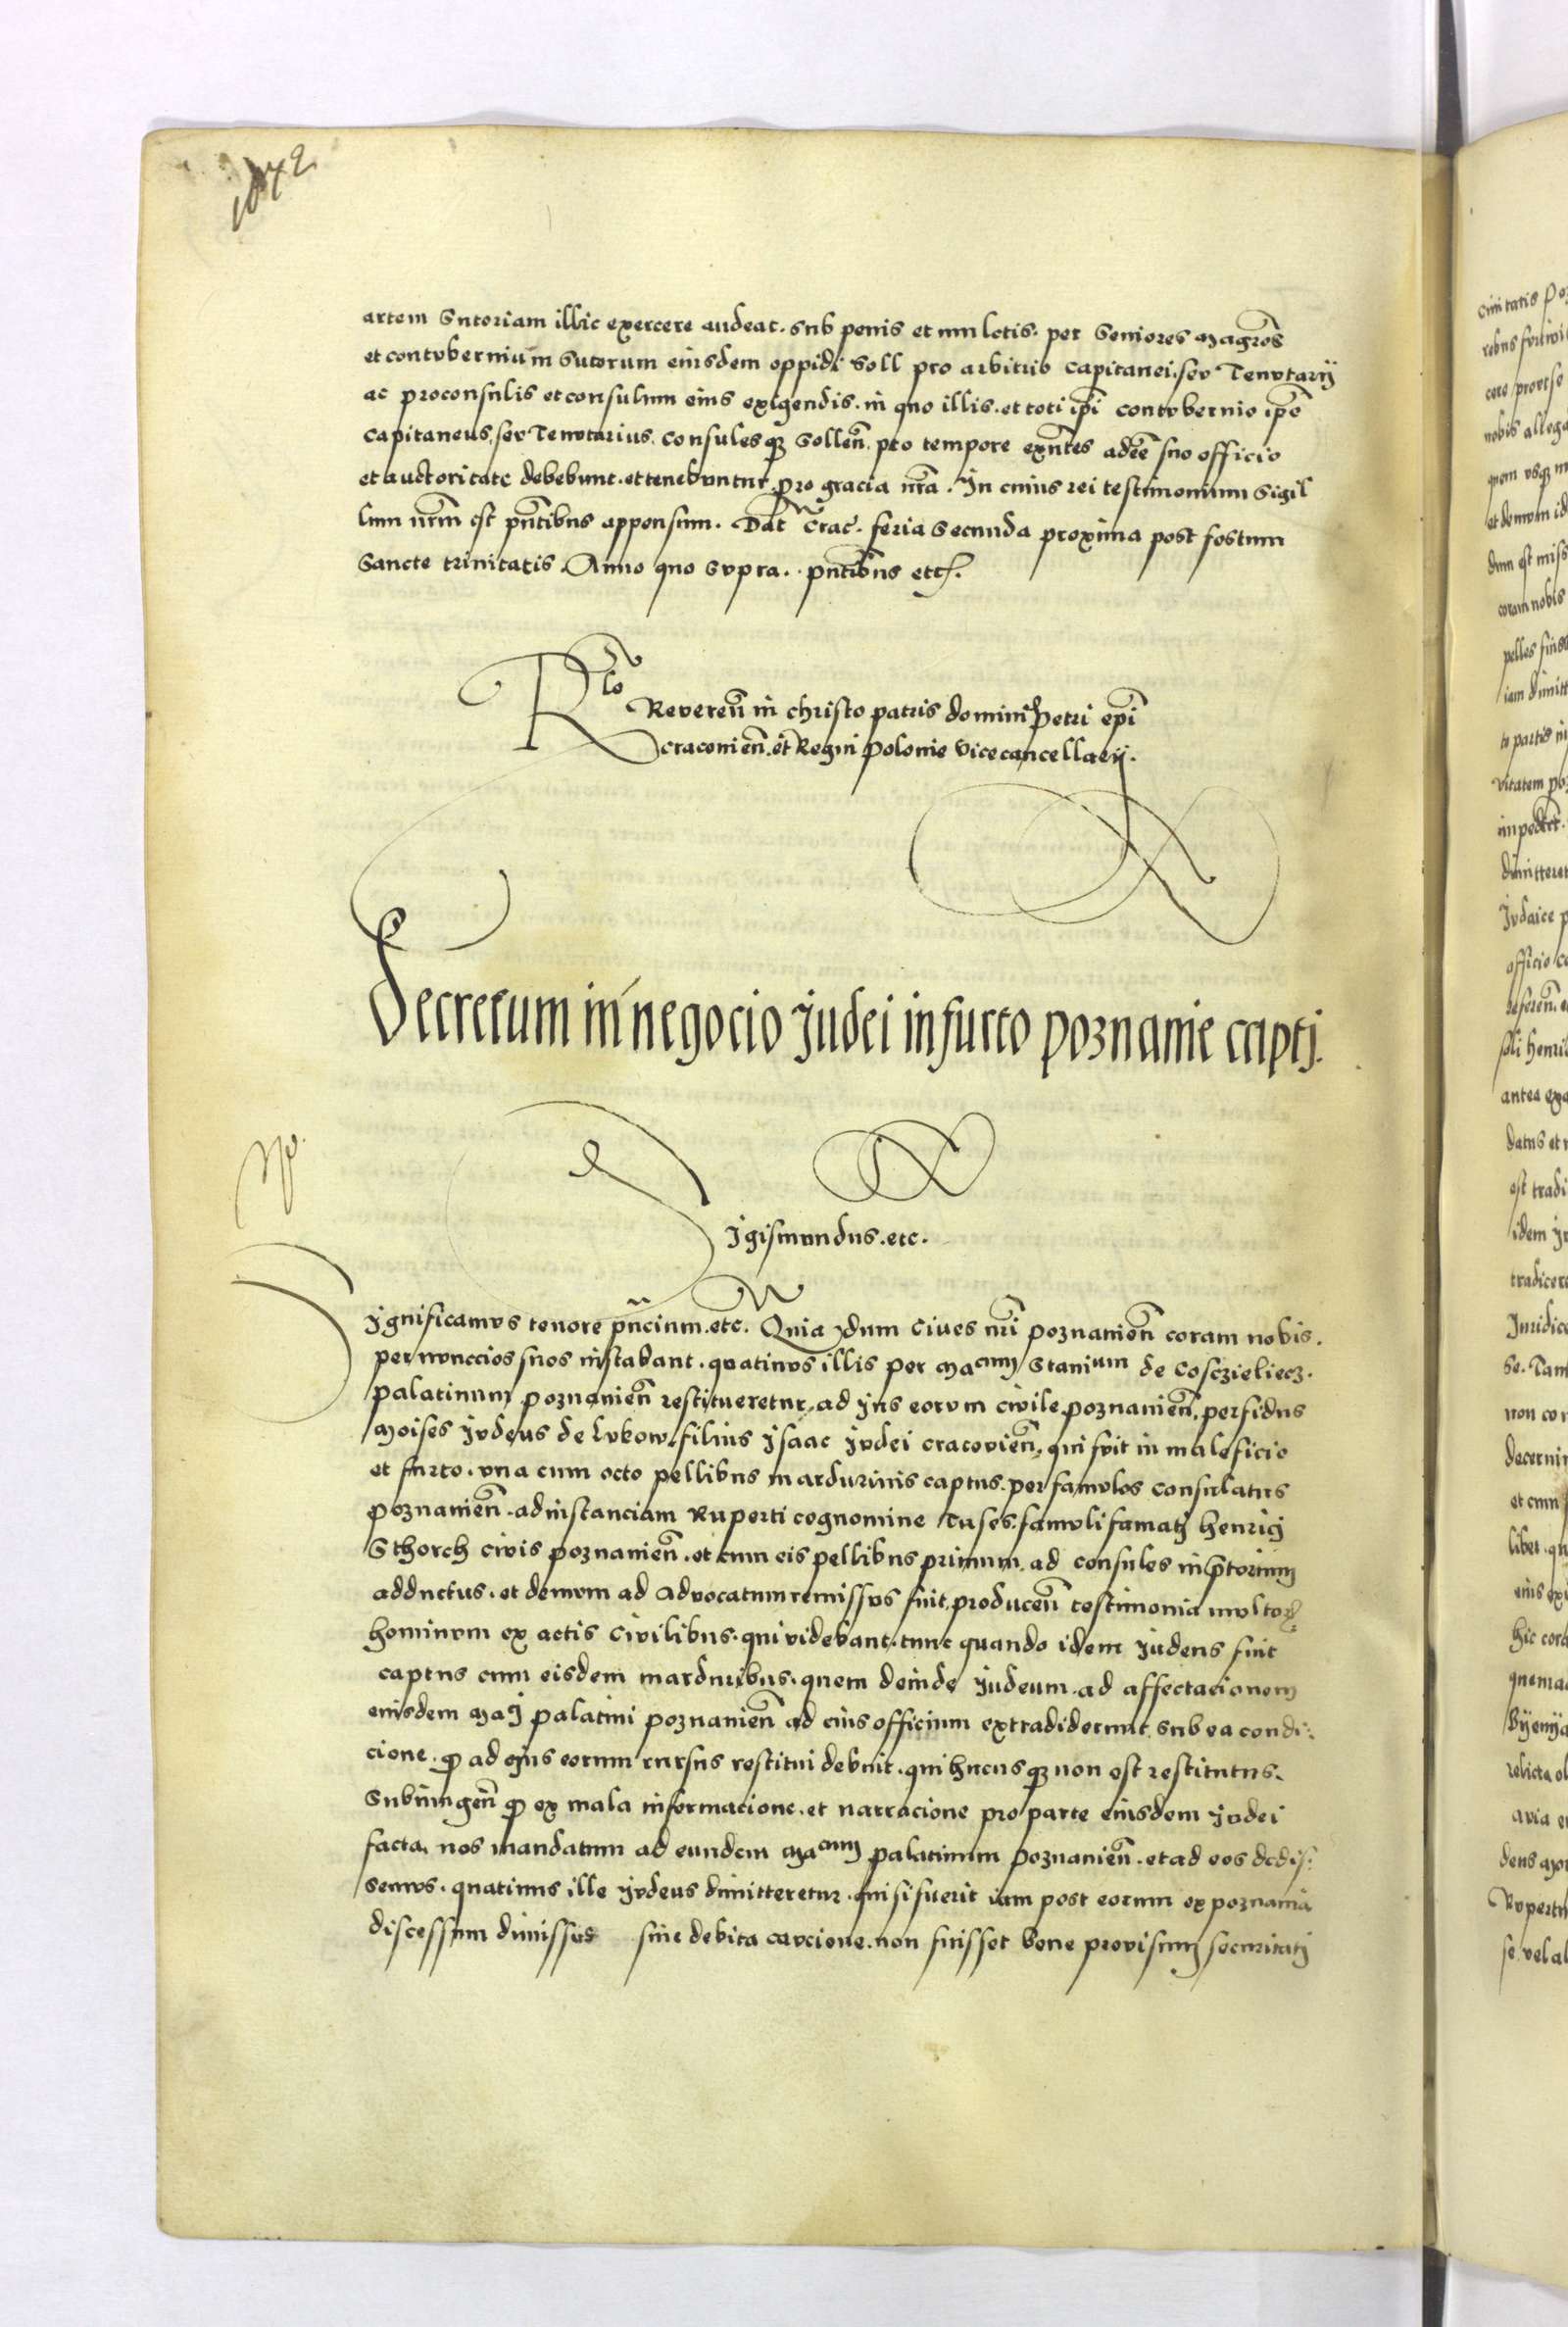 artem Sutoriam illic exercere audeat. sub penis et mulctis. per Seniores magros
et contubernium Sutorum eiusdem oppidi Soll pro arbitrio Capitanei. seu Tenutarij
ac proconsulis et consulum eius exigendis. in quo illis. et toti ipi contubernio ipe
Capitaneus, seu Tenutarius. Consulesq Sollen. pro tempore exntes adee suo officio
et auctoritate debebunt. et tenebuntur pro gracia nra. In cuius rei testimonium Sigil
lum nrm est pntibus appensum. Dat Crac. feria Secunda proxima post festum
Sancte trinitatis. Anno quo Supra. pntibus etc.
Rlo
Reveren in christo patris domini Petri epi
cracovien. et Regni Polonie Vicecancellarij.
Decretum in negocio Judei in furto poznanie capti.
Sigismundus. etc.
Significamus tenore pncium. etc. Quia dum Cives nri poznanien coram nobis.
per nunccios suos instabant. quatinus illis per Macum Stanium de Cosczieliecz.
palatinum poznanien restitueretur, ad ius eorum civile poznanien. perfidus
Moises Judeus de Lukow. filius Isaac Judei cracovien. qui fuit in maleficio
et furto. una cum octo pellibus mardurinis captus. per famulos Consulatus
poznanien. ad instanciam Ruperti cognomine Tuses. famuli famati henrici
Sthorch civis poznanien. et cum eis pellibus primum. ad consules in ptorium
adductus. et demum ad Advocatum remissus fuit. producen testimonia multor
hominum ex actis Civilibus. qui videbant. tunc quando idem Judeus fuit
captus cum eisdem marduribus. quem deinde Judeum. ad affectacionem
eiusdem Maci palatini poznanien ad eius officium extradiderunt. sub ea condi
cione. q ad eius eorum rursus restitui debuit. qui hucusq non est restitutus.
Subiungen q ex mala informacione. et narracione pro parte eiusdem Judei
facta. nos mandatum ad eundem Macum palatinum Poznanien. et ad eos dedis
semus. quatinus ille Judeus dimitteretur. qui si fuerit iam post eorum ex poznania
discessum dimissus sine debita caucione. non fuisset bene provisum securitati